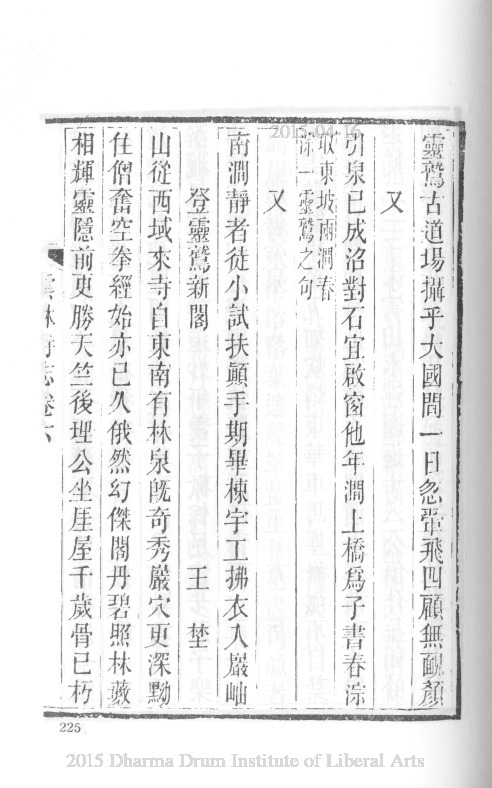 靈鷲古道場攝乎大國間一日忽翬飛四顧無醜顏
又
引泉已成沼對石宜啟窗他年澗上橋爲子書春淙
取東坡兩澗春
淙一靈鷲之句
又
南澗靜者徒小試扶顚手期畢棟宇工拂衣入巖岫
登靈鷲新閣 王埜
山從西域來寺自東南有林泉旣奇秀巖穴更深黝
住僧奮空拳經始亦已久俄然幻傑閣丹碧照林藪
相輝靈隱前更勝天竺後理公坐厓屋千歲骨已朽
雲林寺志卷六
225
2015-04-16
2015 Dharma Drum Institute of Liberal Arts